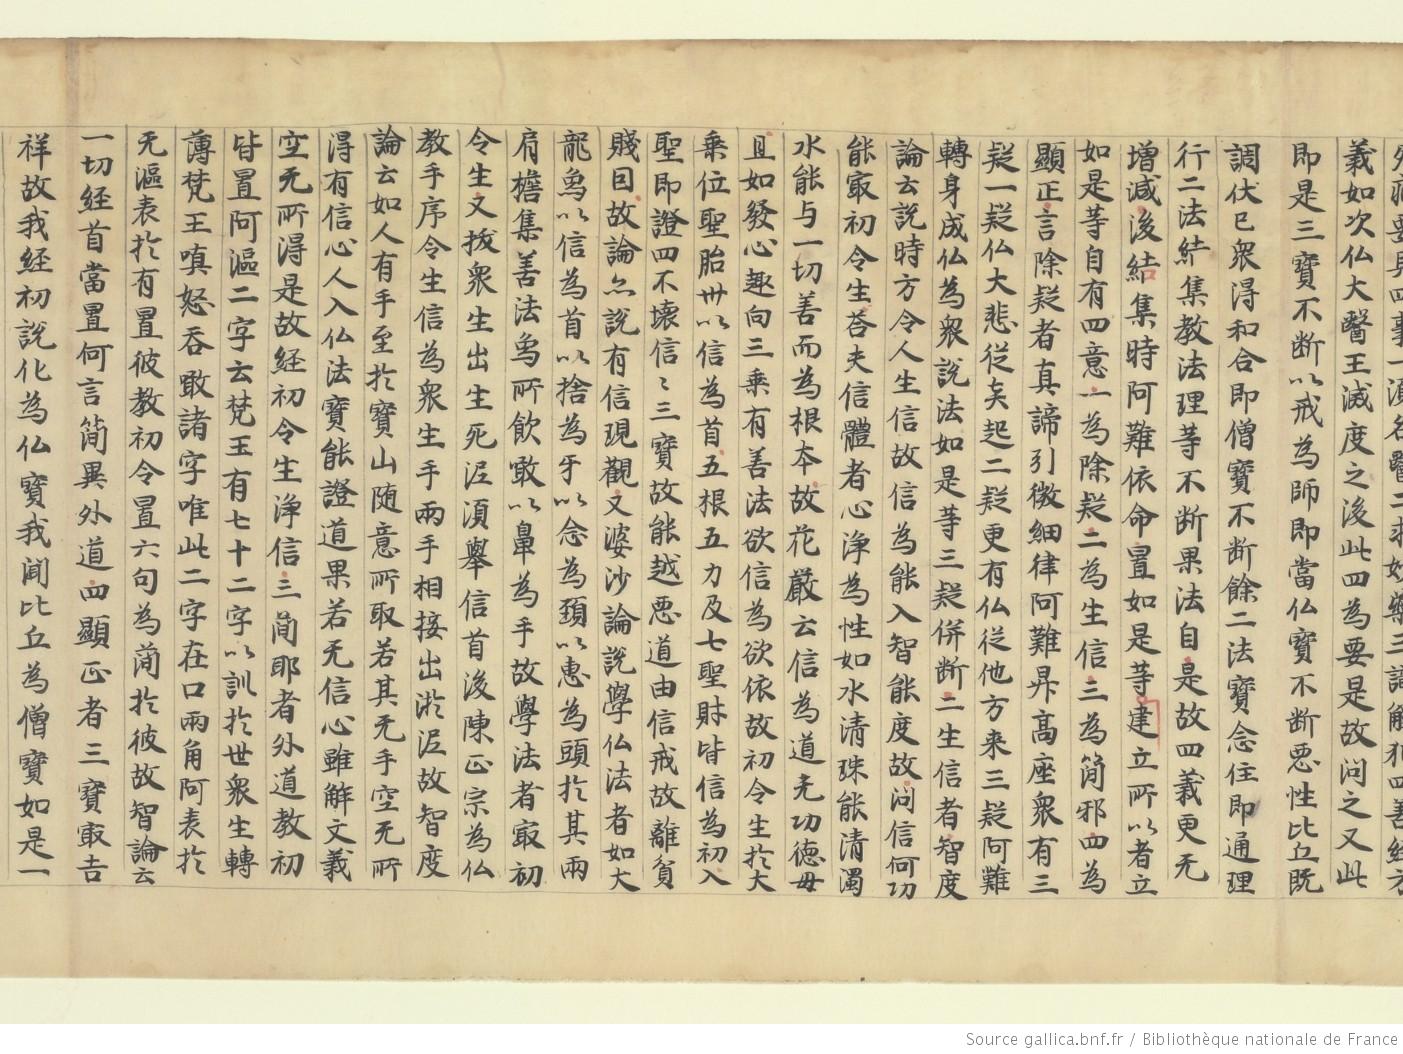 義如次仏大醫王滅度之後此四為要是故问之又此
即是三寶不断以戒為師即當仏寶不断悪性比丘既
調伏已衆得和合即僧寶不断餘二法寶念住即通理
行二法結集教法理等不断果法自是故四義更无
增減後結集時阿難依命置如是等建立所以者立
如是等自有四意一為除疑二為生信三為簡邪四為
顯正言除疑者真諦引微細律阿難昇高座衆有三
疑一疑仏大悲従㝱起二疑更有仏従他方来三疑阿難
轉身成仏為衆説法如是等三疑併断二生信者智度
論云説時方令人生信故信為能入智能度故问信何功
能㝡初令生荅夫信體者心浄為性如水清珠能清濁
水能与一切善而為根本故花嚴云信為道无功德母
且如發心趣向三乗有善法欲信為欲依故初令生於大
乗位聖胎卅以信為首五根五力及七聖財皆信為初入
聖即證四不壊信〻三寶故能越悪道由信戒故離貧
賤因故論亦説有信現觀又婆沙論説學仏法者如大
龍烏以信為首以捨為牙以念為頚以恵為頭於其兩
肩檐集善法烏所飲敢以鼻為手故學法者㝡初
令生文拔衆生出生死泥湏舉信首後陳正宗為仏
教手序令生信為衆生手兩手相接出淤泥故智度
論云如人有手至於寶山随意所取若其无手空无所
得有信心人入仏法寶能證道果若无信心雖解文義
空无所得是故経初令生浄信三蕳耶者外道教初
皆置阿漚二字云梵王有七十二字以訓於世衆生轉
薄梵王嗔怒吞敢諸字唯此二字在口兩角阿表於
无漚表於有置彼教初令置六句為蕳於彼故智論云
一切経首當置何言簡異外道四顯正者三寶㝡吉
祥故我経初説化為仏寶我闻比丘為僧寶如是一
Source gallica.bnf.fr / Bibliothèque nationale de France